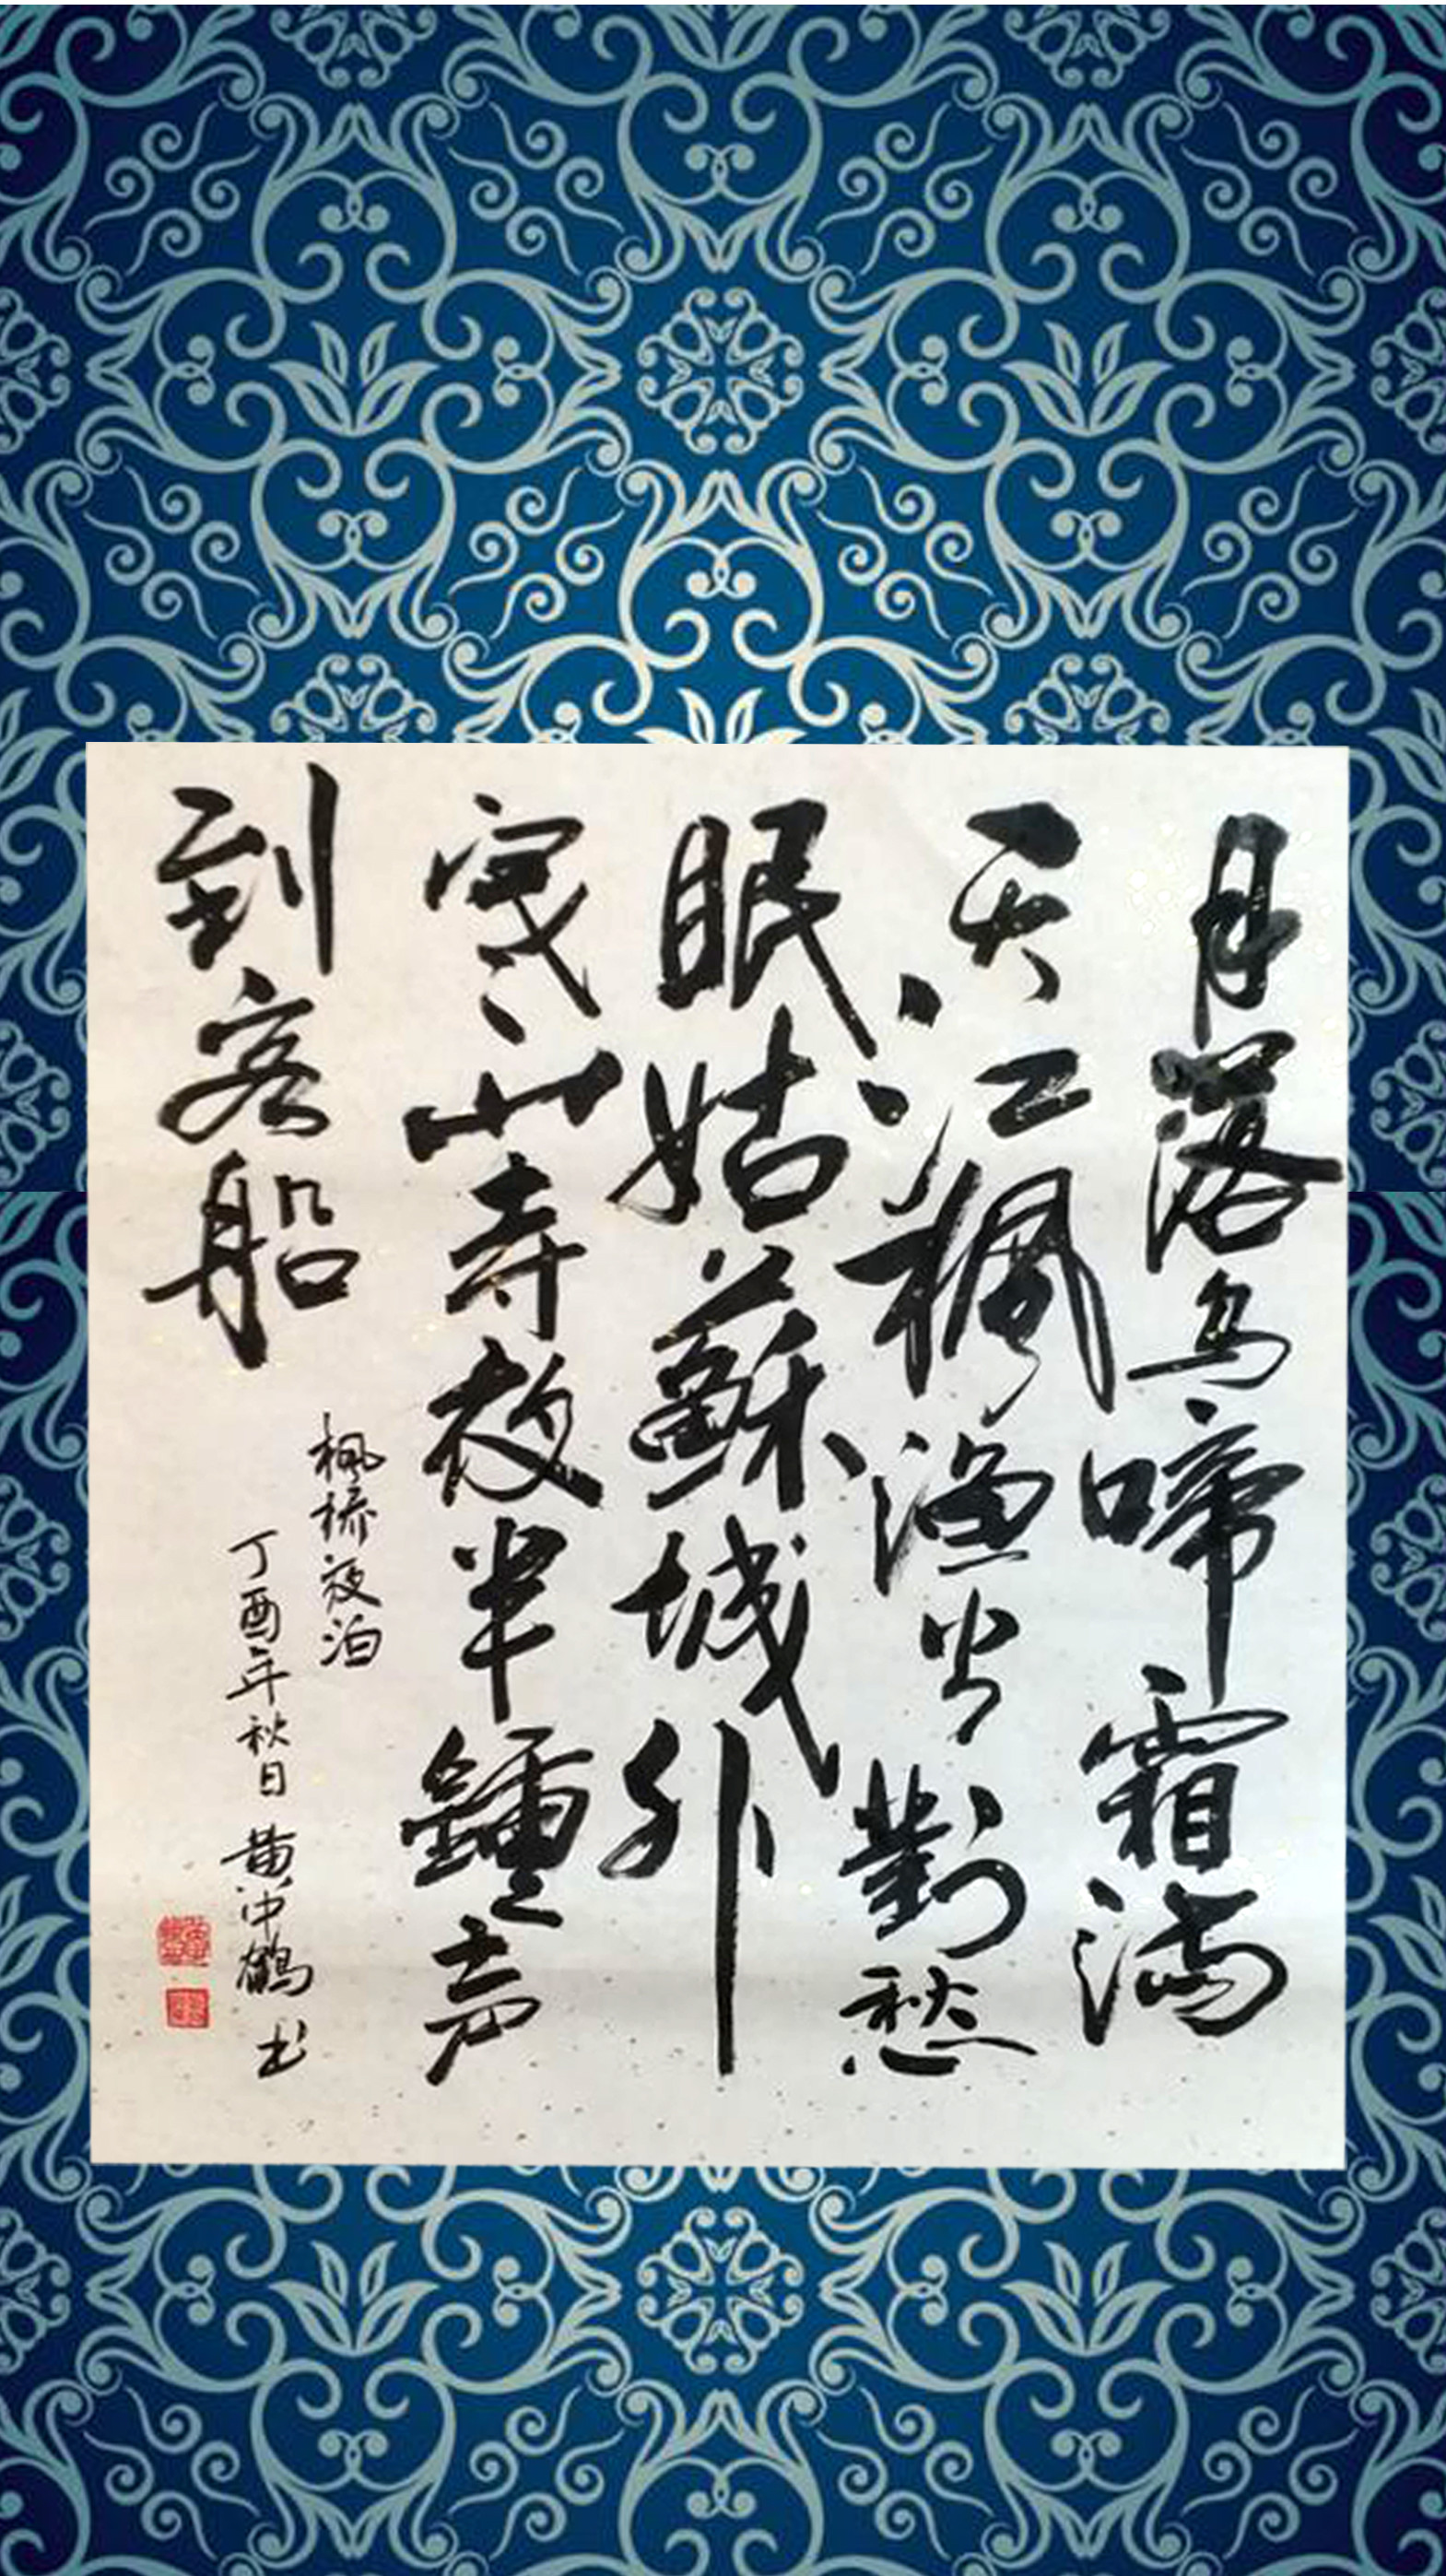 月落烏啼霜滿
天江楓漁火對愁
眠姑蘇城外
寒山寺夜半鍾声
到客船
楓橋夜泊
丁酉年秋日 黄沖鶴 书